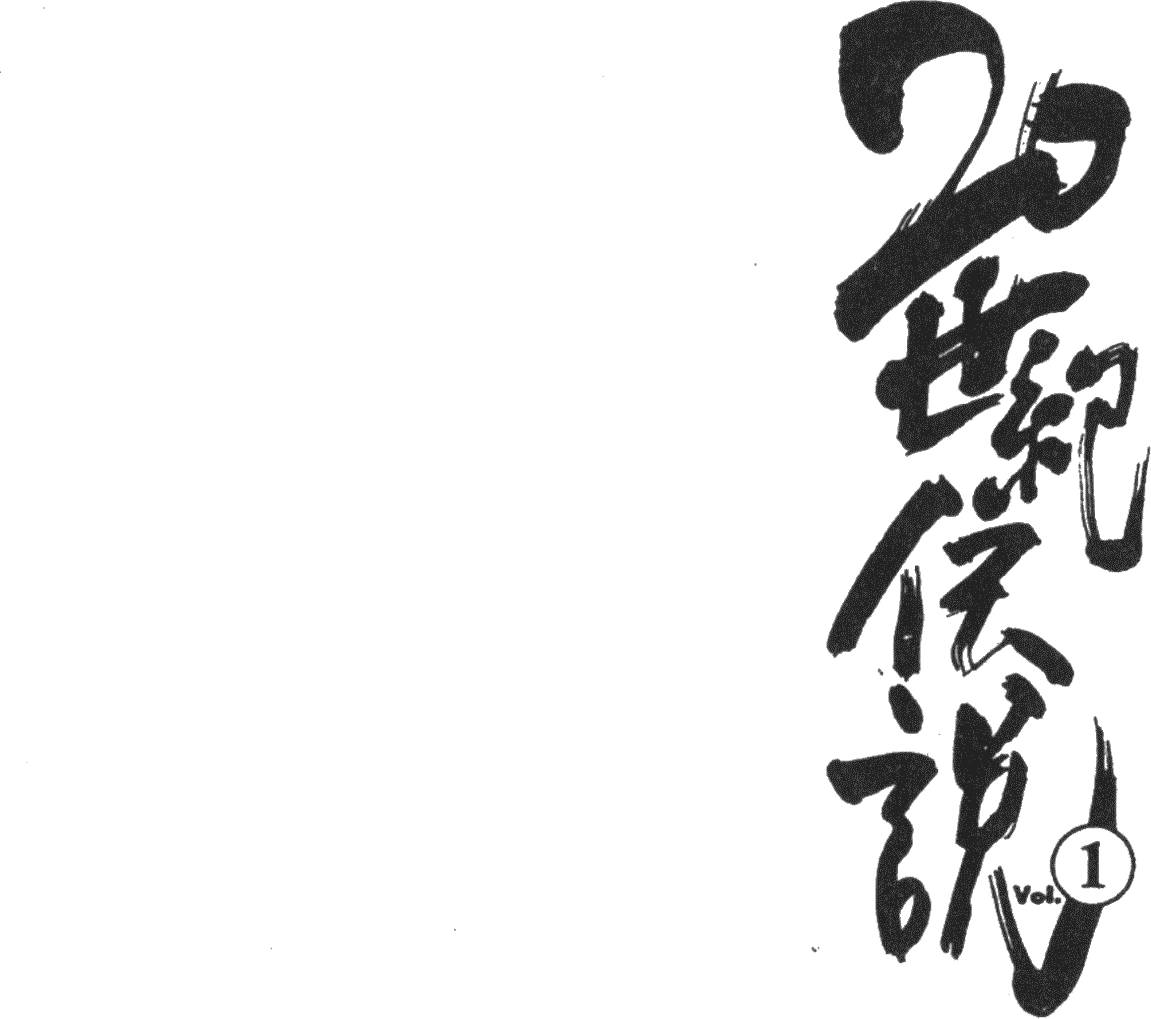 20世紀伝説
Vol. 1